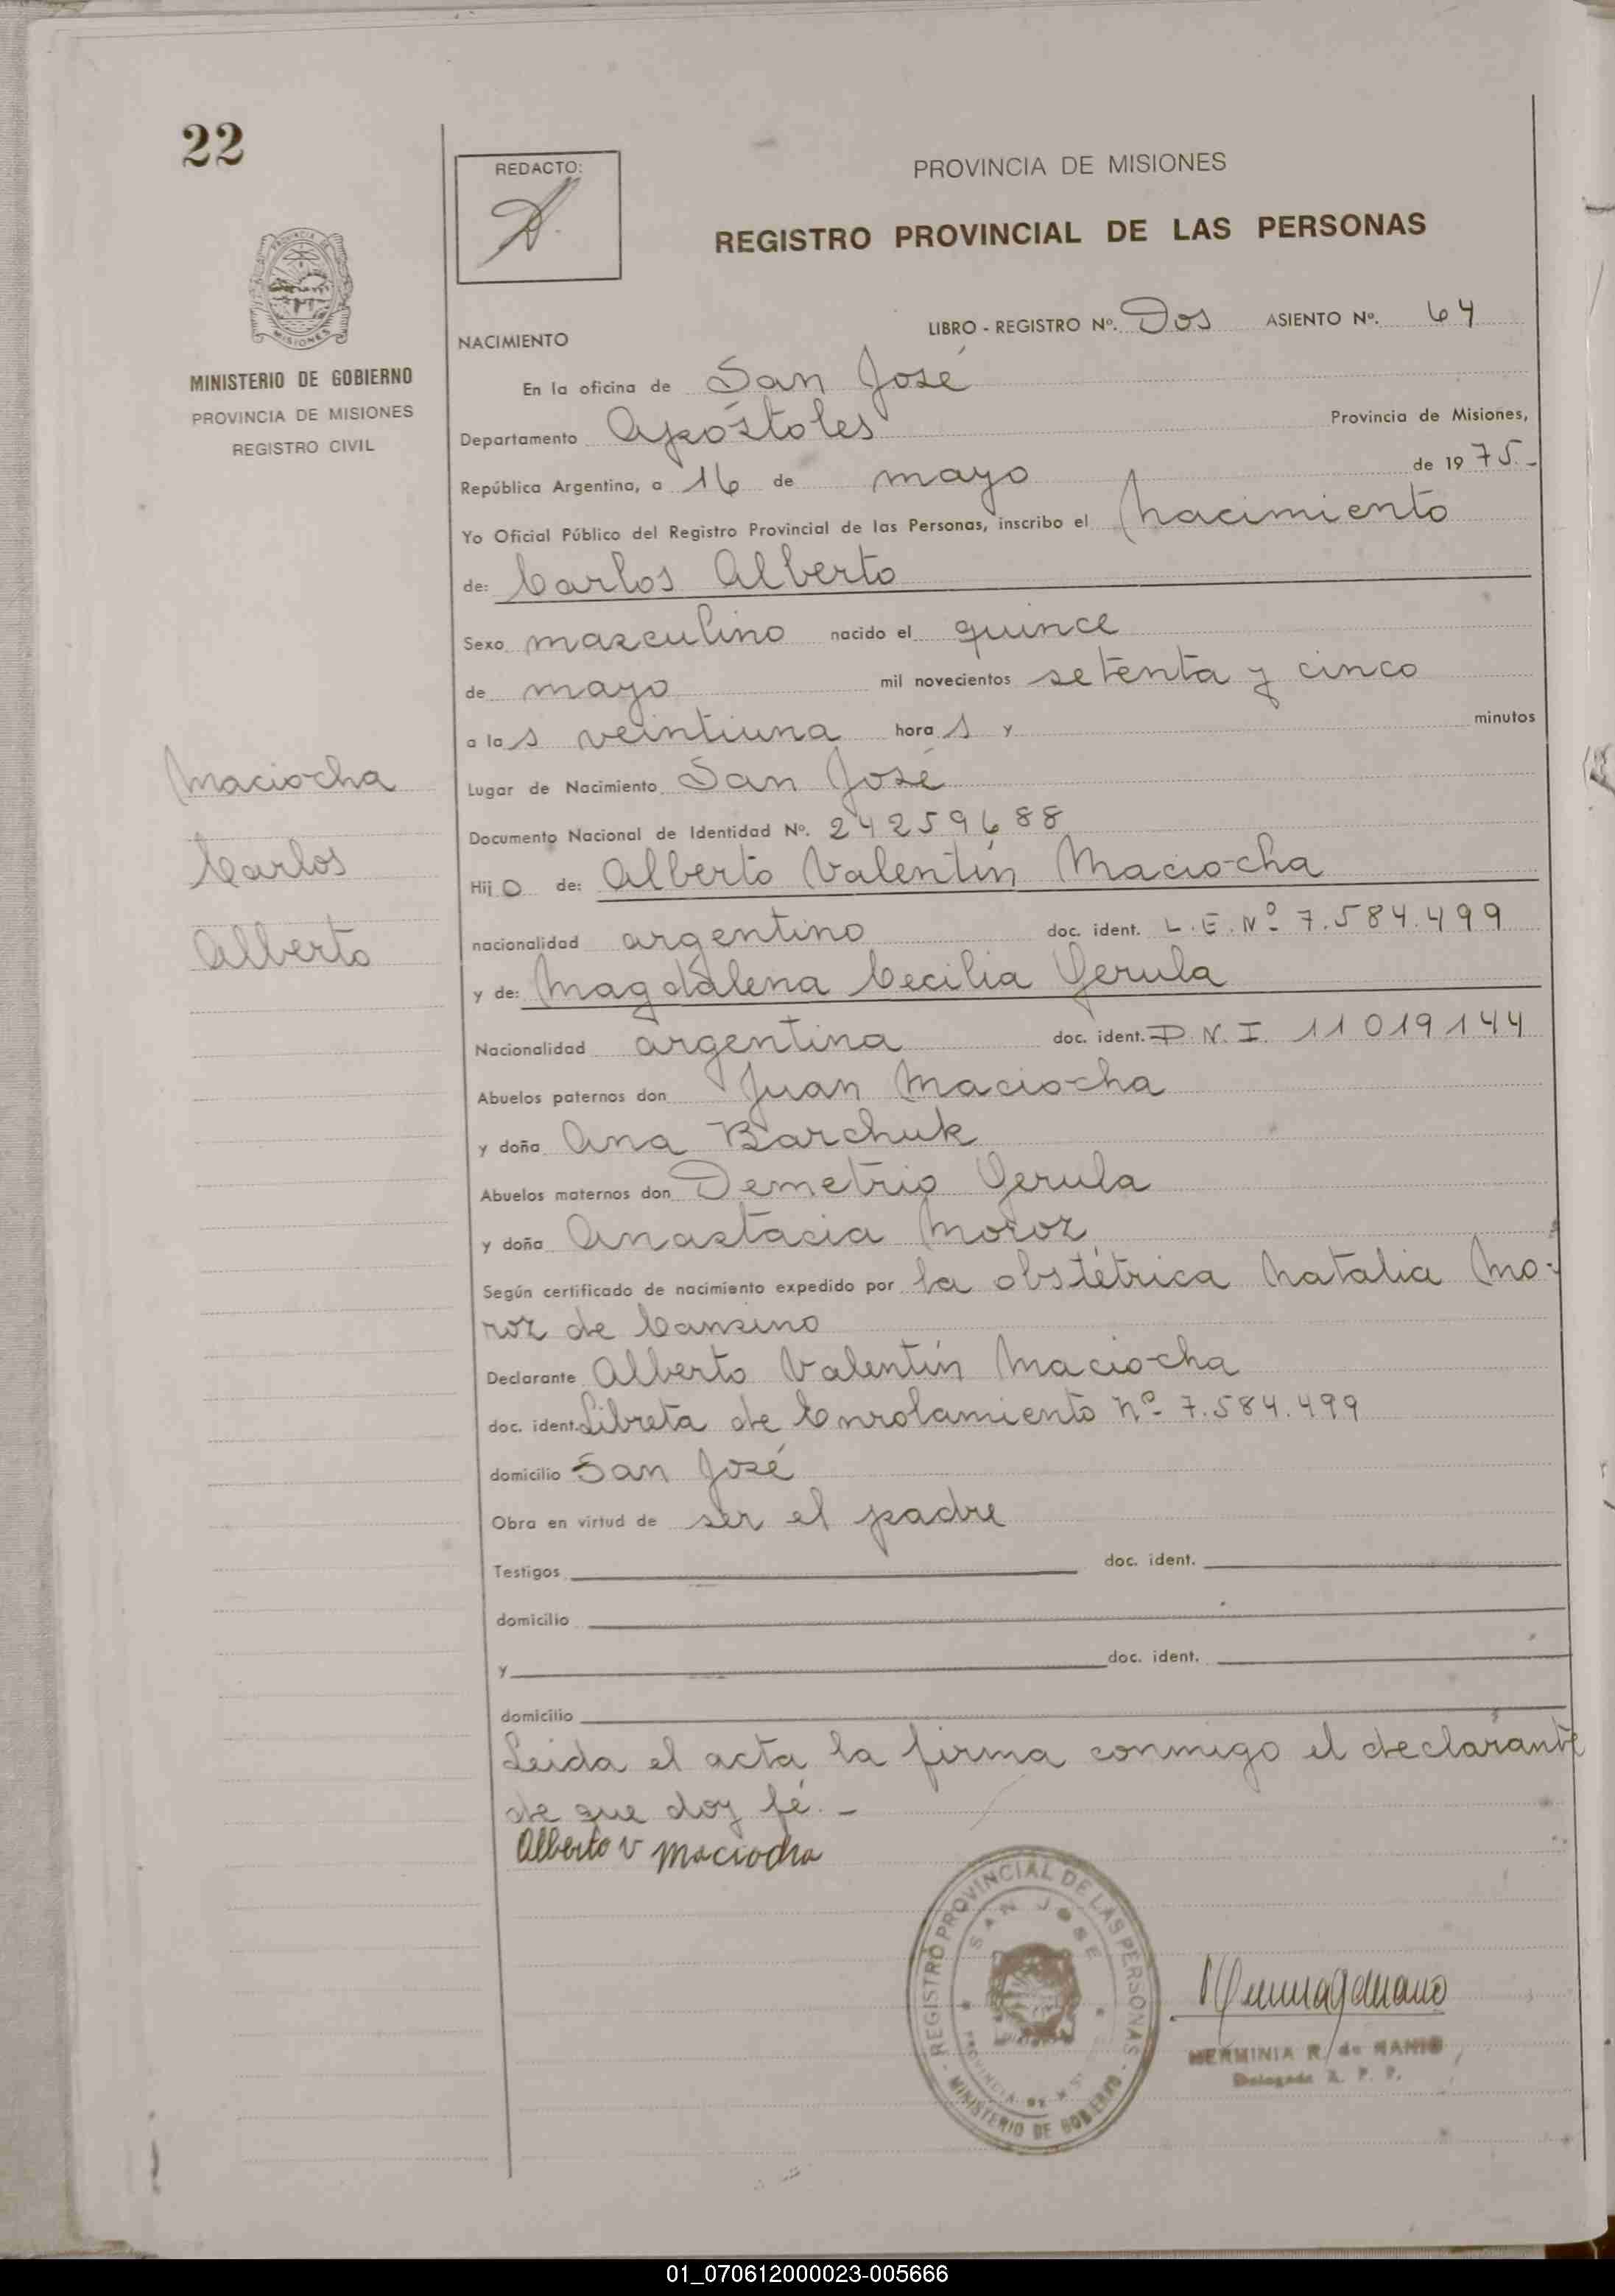 22
REDACTO:
PROVINCIA DE MISIONES
REGISTRO PROVINCIAL DE LAS PERSONAS
PROVINCIA DE
MISIONES
MINISTERIO DE GOBIERNO
PROVINCIA DE MISIONES
REGISTRO CIVIL
LIBRO - REGISTRO Nº. Dos ASIENTO Nº. 64
NACIMIENTO
En la oficina de San José
Departamento Apóstoles Provincia de Misiones,
República Argentina, a 16 de mayo de 1975.-
Yo Oficial Público del Registro Provincial de las Personas, inscribo el Nacimiento
de: Carlos Alberto
Sexo masculino nacido el quince
de mayo mil novecientos setenta y cinco
a las veintiuna horas y minutos
Lugar de Nacimiento San José
Documento Nacional de Identidad Nº. 24259688
Hijo de: Alberto Valentín Maciocha
nacionalidad argentino doc. ident. L.E.Nº 7.584.499
y de: Magdalena Cecilia Gerula
Nacionalidad argentina doc. ident. D.N.I. 11019144
Abuelos paternos don Juan Maciocha
y doña Ana Barchuk
Abuelos maternos don Demetrio Gerula
y doña Anastacia Moroz
Según certificado de nacimiento expedido por la obstétrica Natalia Mo-
roz de Cansino
Declarante Alberto Valentín Maciocha
doc. ident. Libreta de Enrolamiento Nº 7.584.499
domicilio San José
Obra en virtud de ser el padre
Testigos doc. ident.
domicilio
y doc. ident.
domicilio
Leida el acta la firma conmigo el declarante
de que doy fé.-
Alberto V Maciocha
Maciocha
Carlos
Alberto
REGISTRO PROVINCIAL DE LAS PERSONAS
SAN JOSE
PROVINCIA DE
MINISTERIO DE GOBIERNO
HERMINIA R. de
Delegada R. P. P.
01_070612000023-005666